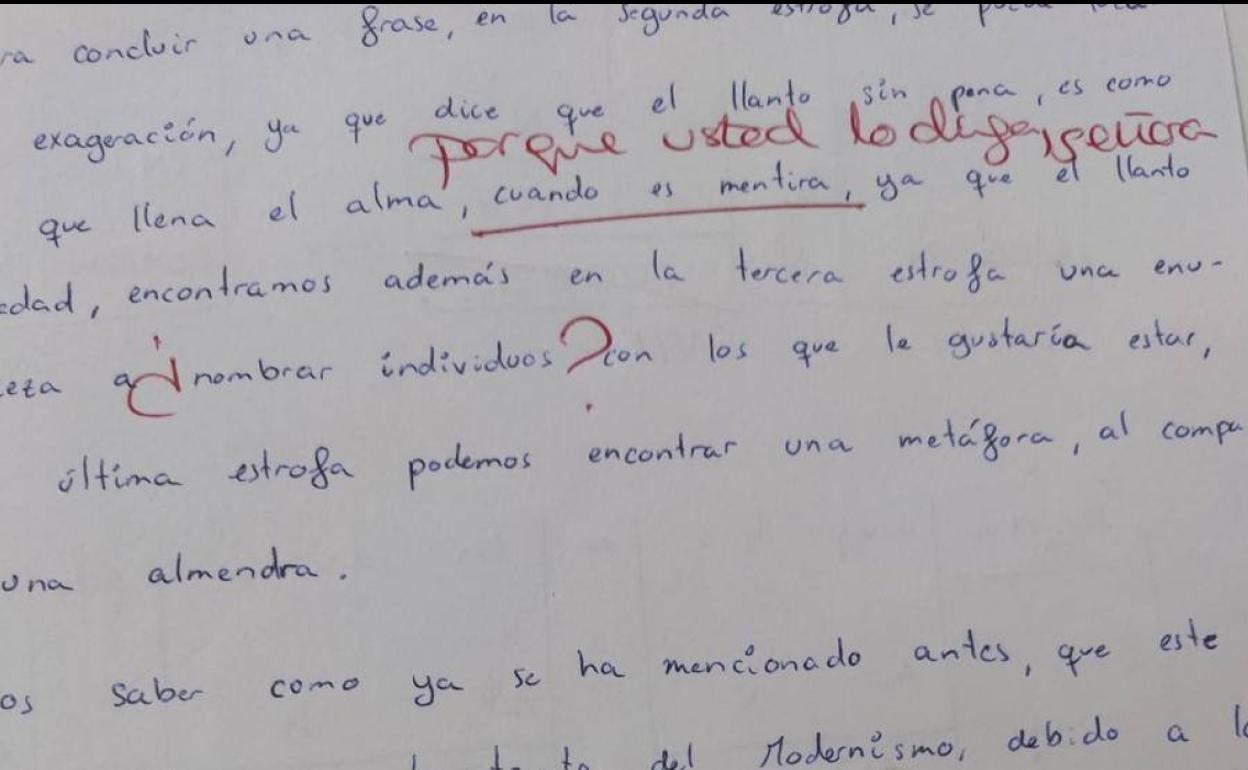 ra concluir una frase, en la segunda estrofa, se
exageración, ya que dice que el llanto sin pena, es como
porque usted lo diga, señora
que llena el alma, cuando es mentira, ya que el llanto
edad, encontramos además en la tercera estrofa una enu-
eza a ¿nombrar individuos? con los que le gustaría estar,
última estrofa podemos encontrar una metáfora, al compa
una almendra.
os saber como ya se ha mencionado antes, que este
del Modernismo, debido a lo